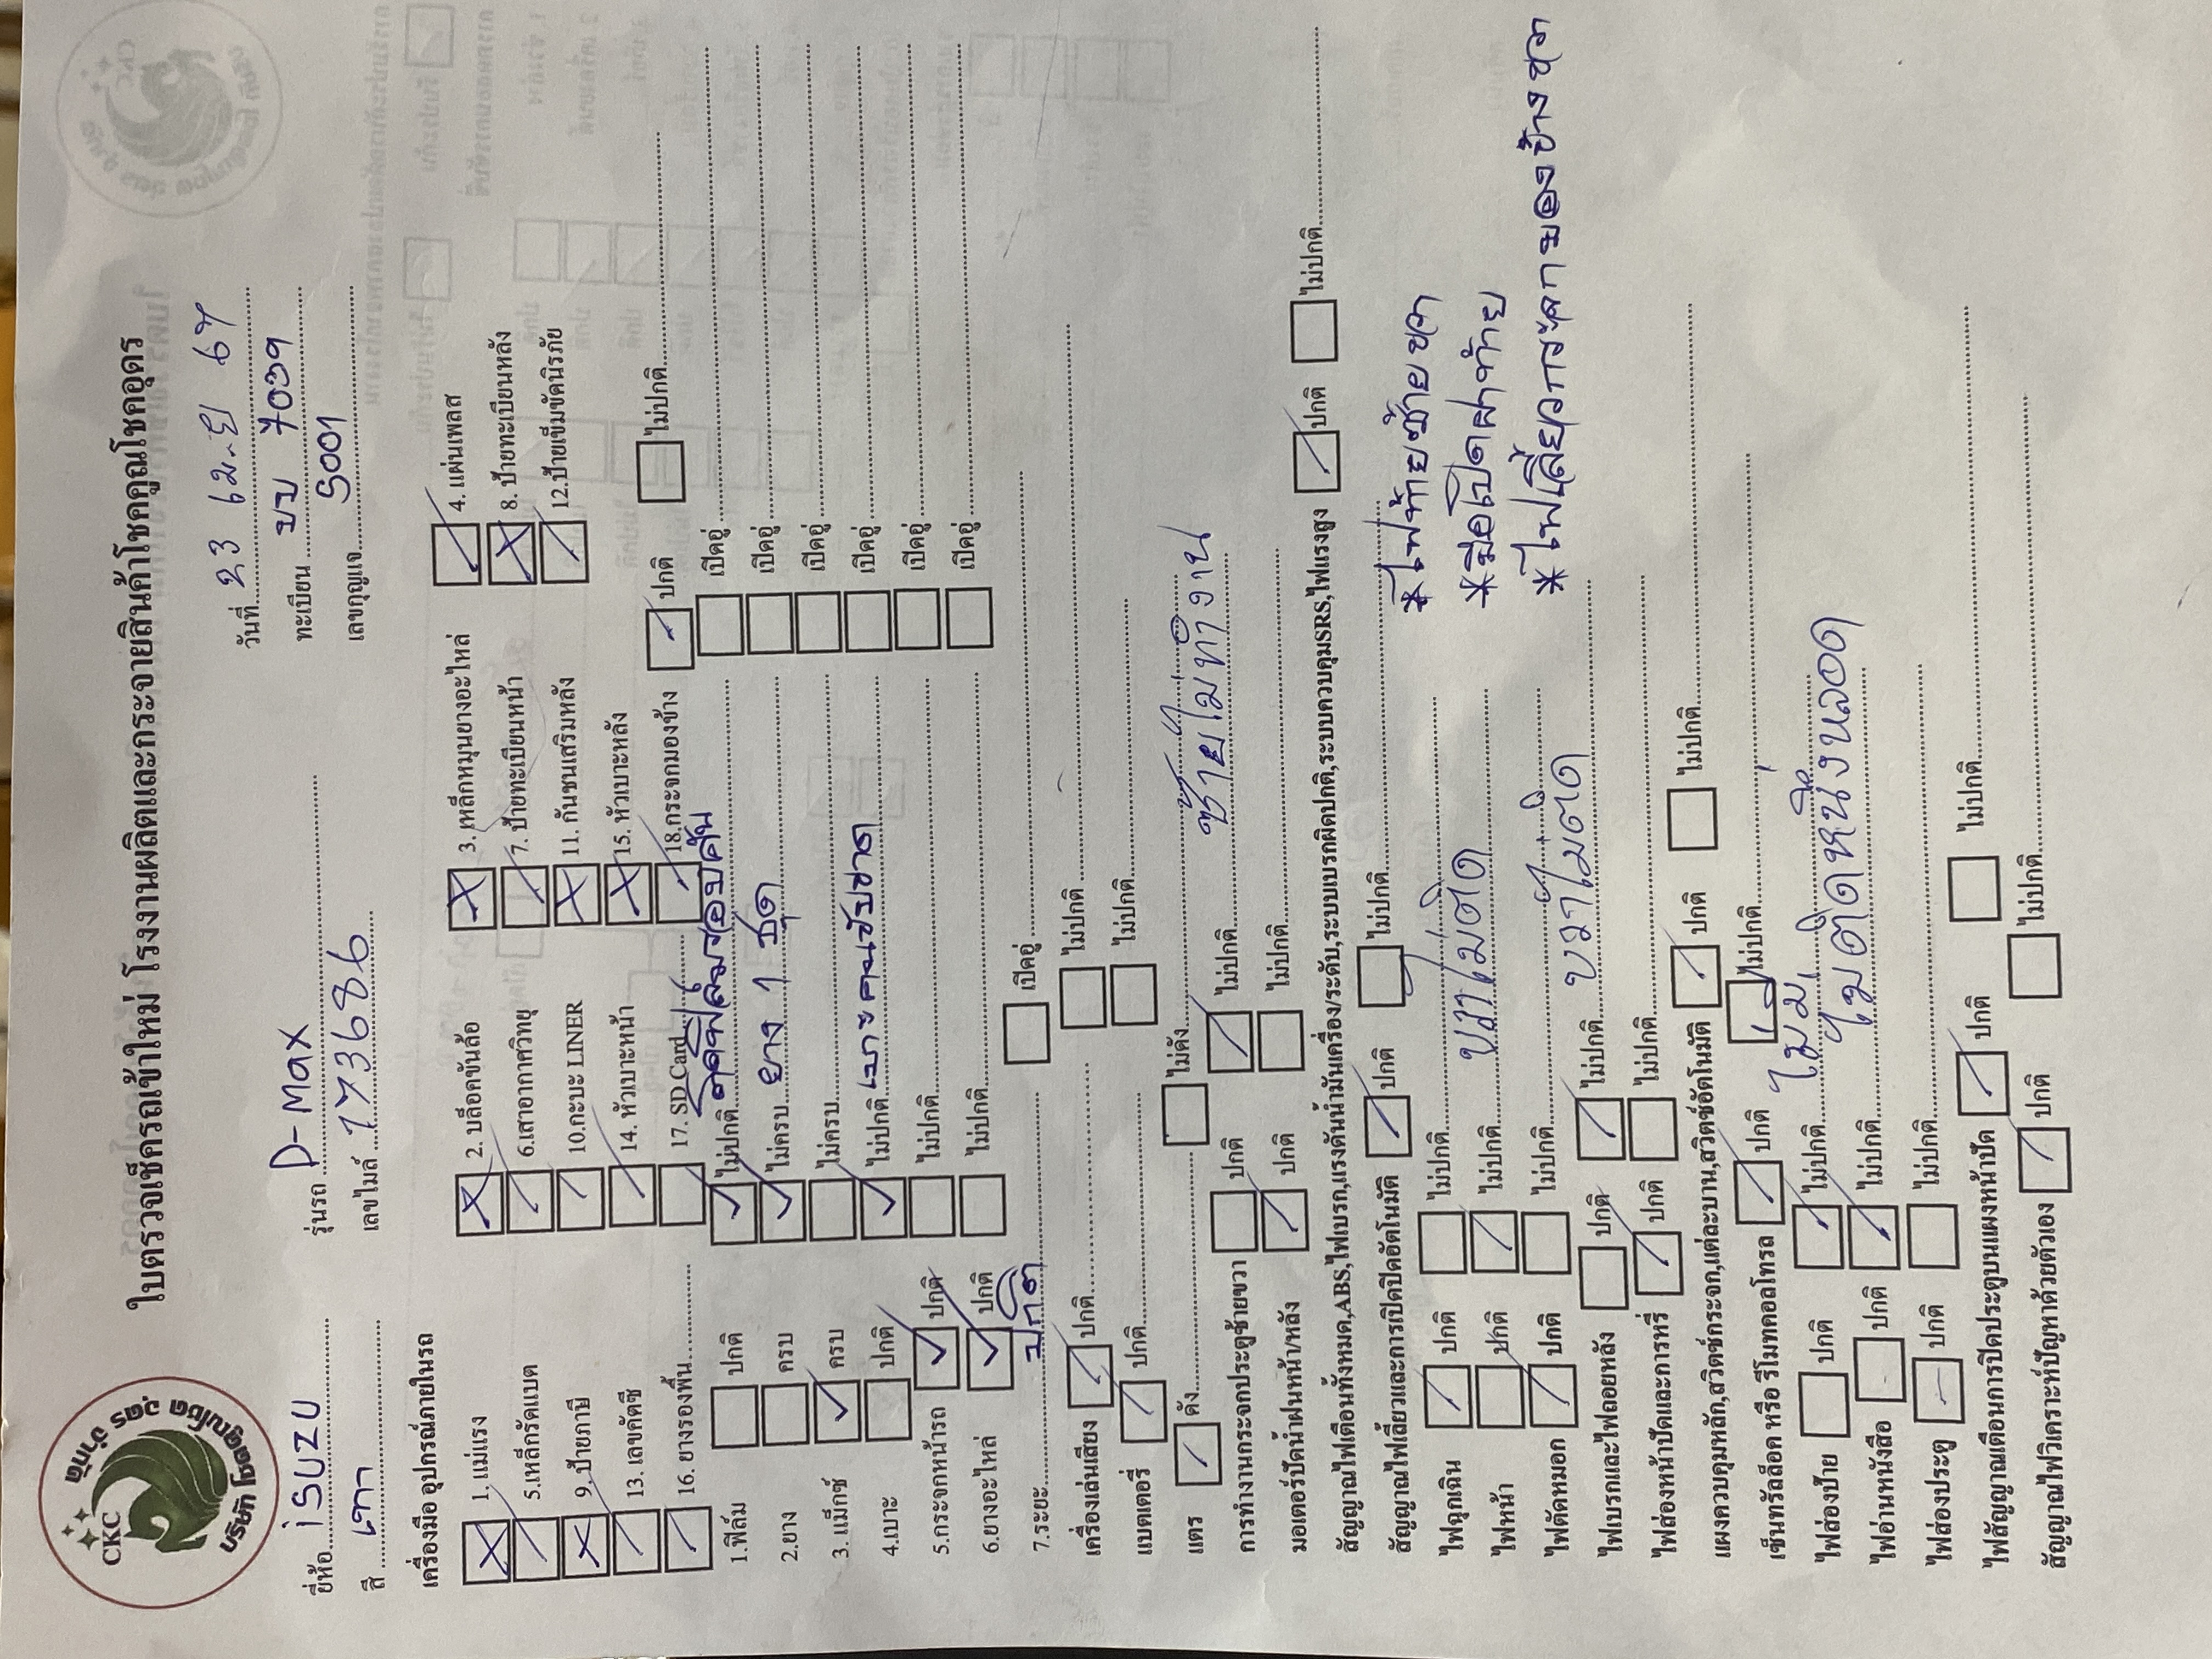 CKC
บริษัท โชคคูณโชค อุดร จำกัด
ใบตรวจเช็ครถเข้าใหม่ โรงงานผลิตและกระจายสินค้าโชคคูณโชคอุดร
วันที่ 23 เม.ย 67
ยี่ห้อ iSUZU รุ่นรถ D-Max ทะเบียน บบ 7039
สี เทา เลขไมล์ 173686 เลขกุญแจ 5001
เครื่องมือ อุปกรณ์ภายในรถ
1. แม่แรง 2. บล็อคขันล้อ 3. เหล็กหมุนยางอะไหล่ 4. แผ่นเพลส
5.เหล็กรัดแบต 6.เสาอากาศวิทยุ 7. ป้ายทะเบียนหน้า 8. ป้ายทะเบียนหลัง
9. ป้ายภาษี 10.กะบะ LINER 11. กันชนเสริมหลัง 12.ป้ายเข็มขัดนิรภัย
13. เลขคัตซี 14. หัวเบาะหน้า 15. หัวเบาะหลัง
16. ยางรองพื้น 17. SD Card 18.กระจกมองข้าง ปกติ ไม่ปกติ
1.ฟิล์ม ปกติ ไม่ปกติ ติดฟิล์มรอบคัน เปิดอู่
2.ยาง ครบ ไม่ครบ ยาง 1 ชุด เปิดอู่
3. แม็กซ์ ครบ ไม่ครบ เปิดอู่
4.เบาะ ปกติ ไม่ปกติ เบาะคนขับขาด เปิดอู่
5.กระจกหน้ารถ ปกติ ไม่ปกติ เปิดอู่
6.ยางอะไหล่ ปกติ ไม่ปกติ เปิดอู่
7.ระยะ ปกติ เปิดอู่
เครื่องเล่นเสียง ปกติ ไม่ปกติ
แบตเตอรี่ ปกติ ไม่ปกติ
แตร ดัง ไม่ดัง
การทำงานกระจกประตูซ้ายขวา ปกติ ไม่ปกติ ซ้ายไม่ทำงาน
มอเตอร์ปัดน้ำฝนหน้า/หลัง ปกติ ไม่ปกติ
สัญญาณไฟเตือนทั้งหมด,ABS,ไฟเบรก,แรงดันน้ำมันเครื่อง/ระดับ,ระบบเบรกผิดปกติ,ระบบควบคุมSRS,ไฟแรงสูง ปกติ ไม่ปกติ
สัญญาณไฟเลี้ยวและการเปิดปิดอัตโนมัติ ปกติ ไม่ปกติ
*ไฟท้ายซ้ายขวา
ไฟฉุกเฉิน ปกติ ไม่ปกติ
*มือเปิดฝาท้าย
ไฟหน้า ปกติ ไม่ปกติ ขวาไม่ติด
ไฟตัดหมอก ปกติ ไม่ปกติ
ไฟเบรกและไฟถอยหลัง ปกติ ไม่ปกติ ขวาไม่ติด
ไฟส่องหน้าปัดและการหรี่ ปกติ ไม่ปกติ
แผงควบคุมหลัก,สวิตช์กระจก,แต่ละบาน,สวิตช์อัตโนมัติ ปกติ ไม่ปกติ
เซ็นทรัลล็อค หรือ รีโมทคอลโทรล ปกติ ไม่ปกติ
ไฟส่องป้าย ปกติ ไม่ปกติ ไม่มี
ไฟอ่านหนังสือ ปกติ ไม่ปกติ ไม่ติดหนึ่งหลอด
ไฟส่องประตู ปกติ ไม่ปกติ
ไฟสัญญาณเตือนการปิดประตูบนแผงหน้าปัด ปกติ ไม่ปกติ
สัญญาณไฟวิเคราะห์ปัญหาด้วยตัวเอง ปกติ ไม่ปกติ